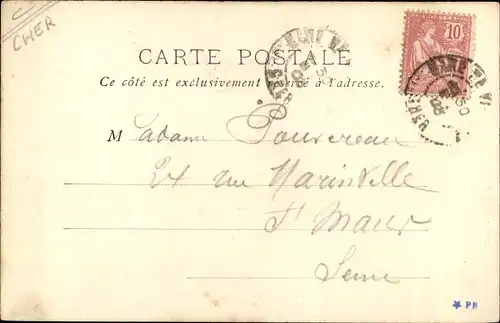 CHER
10
CARTE POSTALE
Ce côté est exclusivement réservé à l'adresse.
Madame Pouvereau
24 rue Marinville
St Maur
Seine
PB